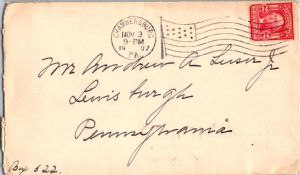 CHAMBERSBURG
NOV 3
9-PM
1907
PA.
Mr Andrew A Luser Jr
Lewisburgh
Pennsylvania
Box 522.